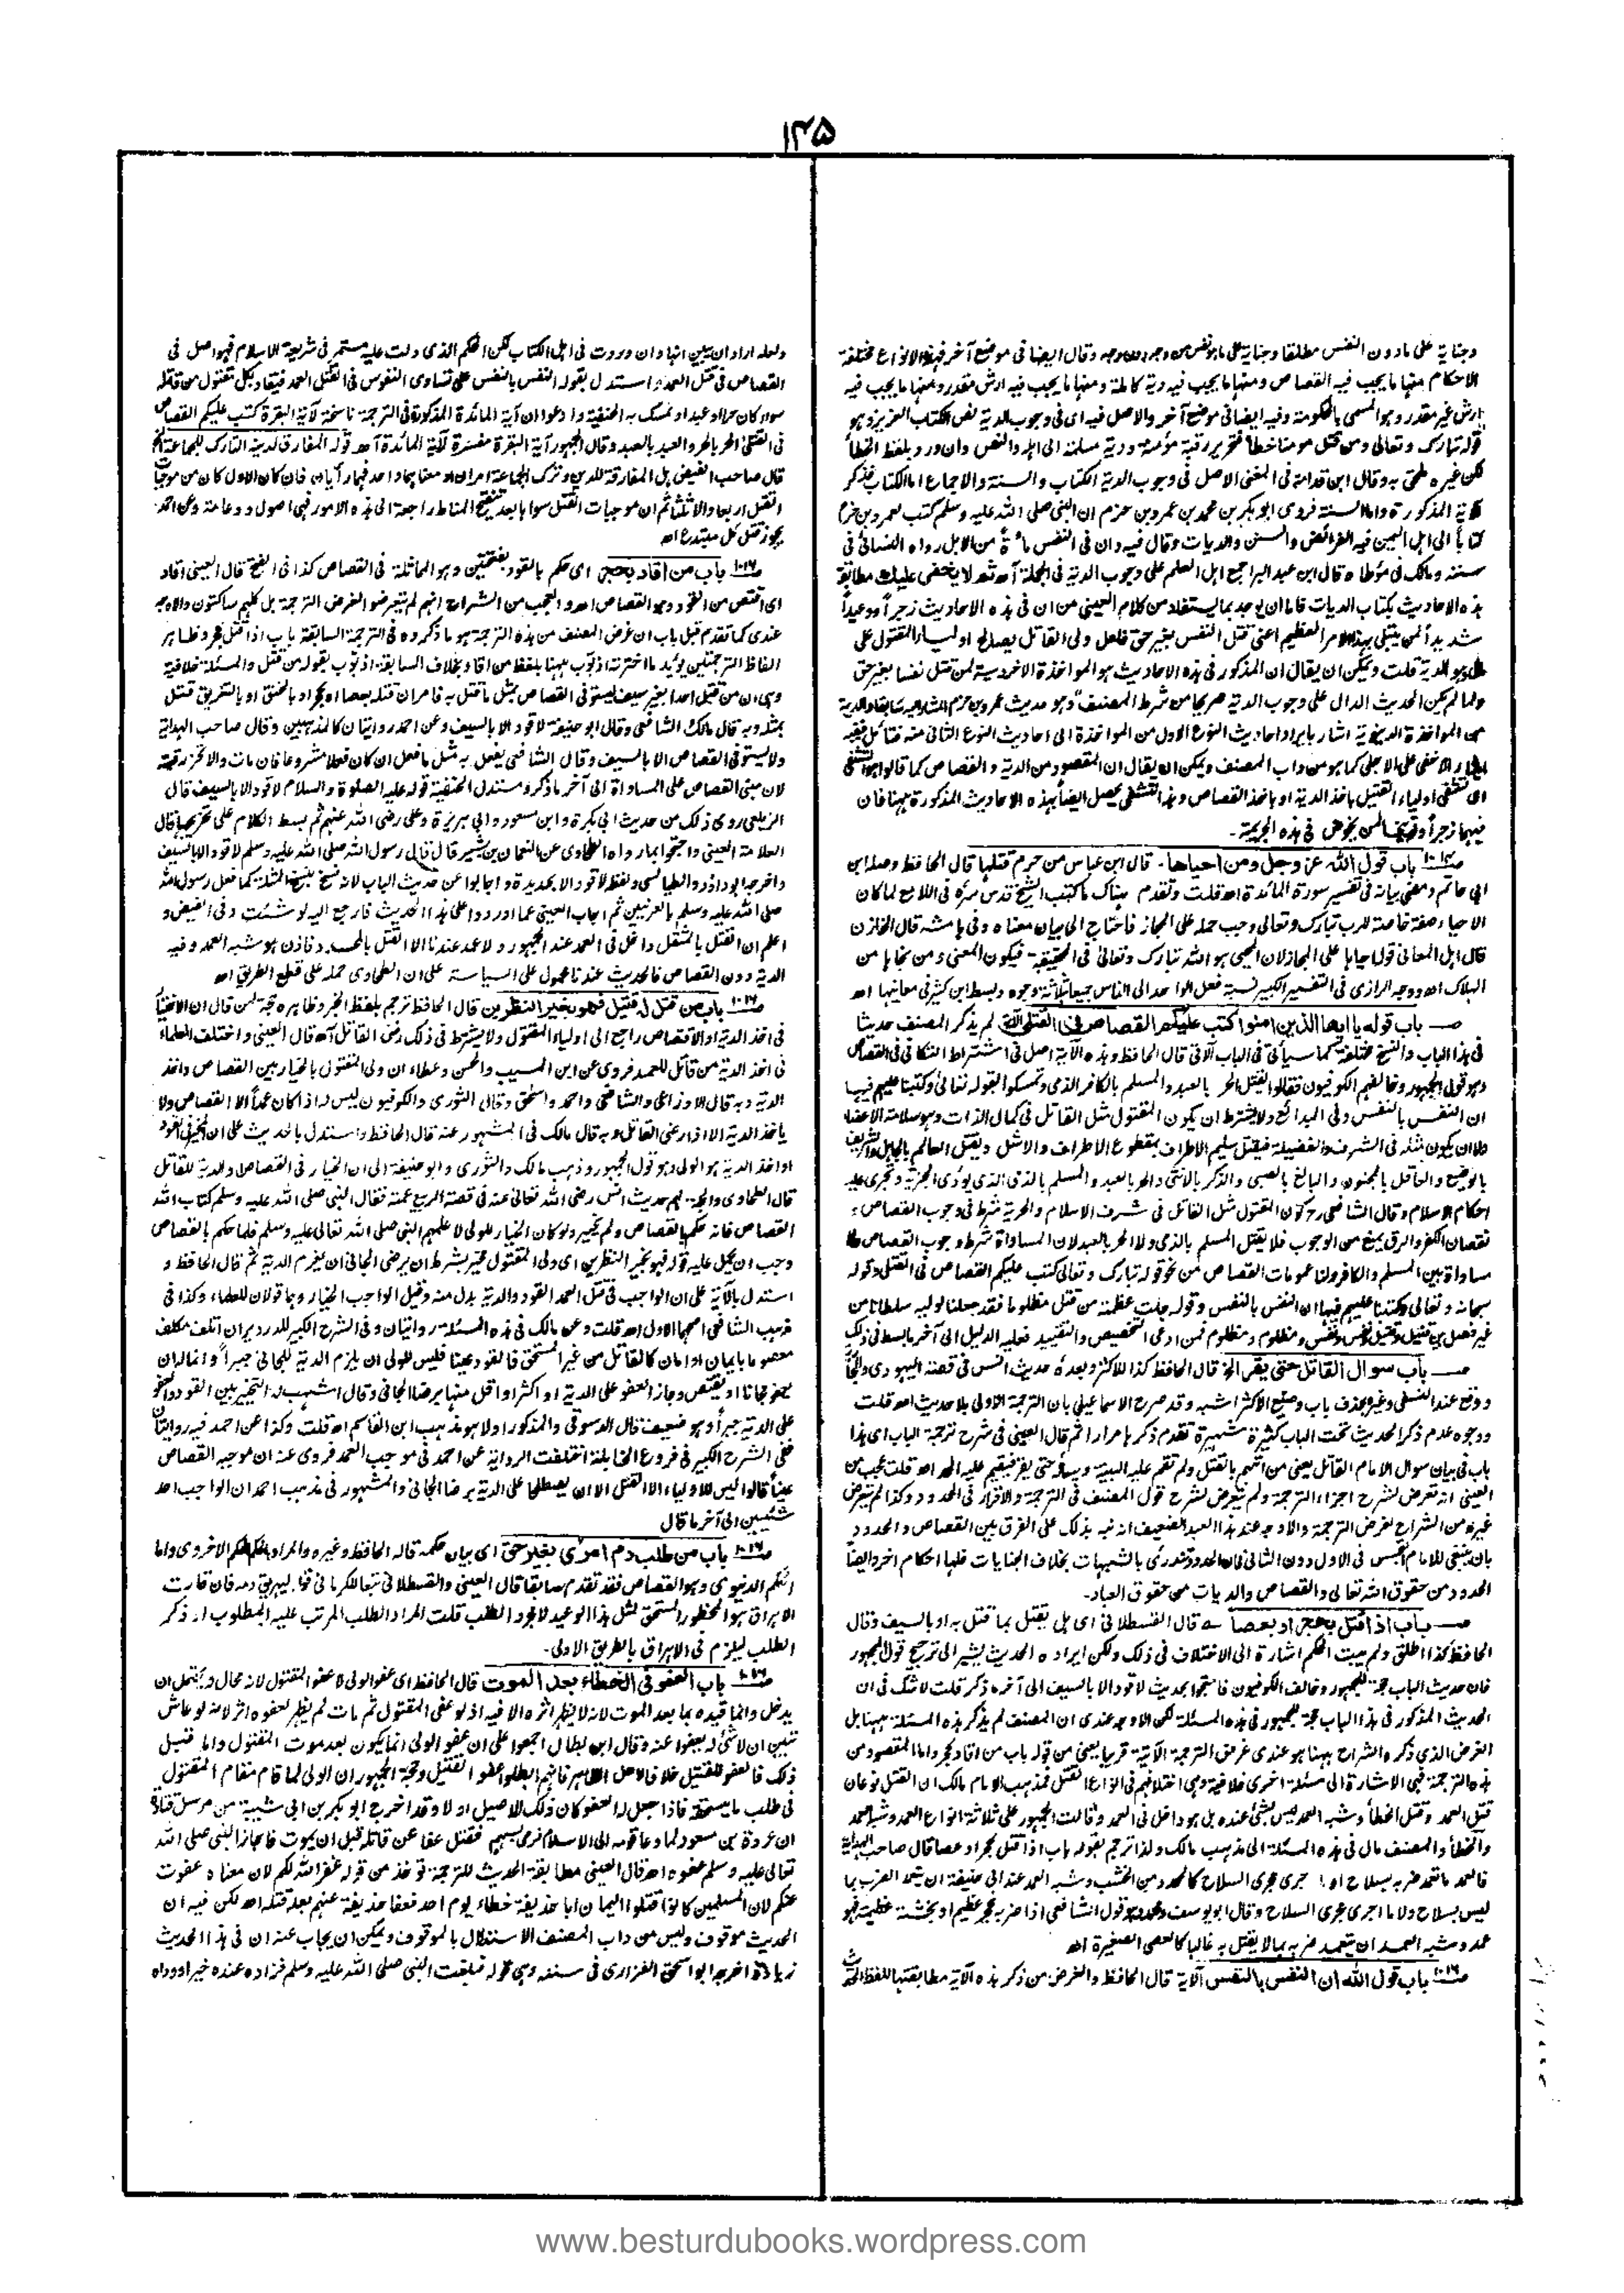 ۱۳۵
وجناية على مادون النفس مطلقا وجناية على ما هو نفس من وجه دون وجه وقال ايضا فى موضع آخر فهذه الانواع مختلفة
الاحكام منها ما يجب فيه القصاص ومنها ما يجب فيه دية كاملة ومنها ما يجب فيه ارش مقدر ومنها ما يجب فيه
ارش غير مقدر وهو المسمى بالحكومة وفيه ايضا فى موضع آخر والاصل فيه اى فى وجوب الدية نص الكتاب العزيز وهو
قوله تبارك وتعالى ومن قتل مومنا خطأ فتحرير رقبة مؤمنة ودية مسلمة الى اهله والنص وان ورد بلفظ الخطأ
لكن غيره ملحق به وقال ابن قدامة فى المغنى الاصل فى وجوب الدية الكتاب والسنة والاجماع اما الكتاب فذكر
الآية المذكورة واما السنة فروى ابو بكر بن محمد بن عمرو بن حزم ان النبى صلى الله عليه وسلم كتب لعمرو بن حزم
كتابا الى اهل اليمن فيه الفرائض والسنن والديات وقال فيه وان فى النفس مائة من الابل رواه النسائى فى
سننه ومالك فى مؤطاه قال ابن عبد البر اجمع اهل العلم على وجوب الدية فى الجملة آه ثم لا يخفى عليك مطابقة
هذه الاحاديث بكتاب الديات فاما ان يوجد بما يستفاد من كلام العينى من ان فى هذه الاحاديث زجرا ووعيدا
شديدا لمن يبتلى بهذا الامر العظيم اعنى قتل النفس بغير حق فلعل ولى القاتل يصالح اولياء المقتول على
وهو الدية قلت ويمكن ان يقال ان المذكور فى هذه الاحاديث هو المواخذة الاخروية لمن قتل نفسا بغير حق
ولما لم يكن الحديث الدال على وجوب الدية صريحا من شرط المصنف وهو حديث عمرو بن حزم
من المواخذة الدنيوية اشار بايراد احاديث النوع الاول من المواخذة الى احاديث النوع الثانى منه
الاخفى على الاجلى كما هو من داب المصنف ويمكن ان يقال ان المقصود من الدية والقصاص كما قالوا هو التشفى
اى تشفى اولياء القتيل باخذ الدية او باخذ القصاص وهذا التشفى يحصل ايضا بهذه الاحاديث المذكورة ههنا فان
فيها زجرا وتوبيخا لمن يخوض فى هذه الجريمة -
باب قول الله عز وجل ومن احياها - قال ابن عباس من حرم قتلها قال الحافظ وصله ابن
ابى حاتم ومضى بيانه فى تفسير سورة المائدة اه قلت وتقدم هناك ما كتب الشيخ قدس سره فى اللامع لما كان
الاحياء صفة خاصة للرب تبارك وتعالى وجب حمله على المجاز فاحتاج الى بيان معناه وفى هامشه قال الخازن
قال اهل المعانى قوله احياها على المجاز لان المحيى هو الله تبارك وتعالى فى الحقيقة - فيكون المعنى ومن نجاها من
الهلاك اه ووجه الرازى فى التفسير الكبير نسبة فعل الواحد الى الناس جميعا بثلاثة وجوه وبسط ابن كثير فى معانيها اه
باب قوله يا ايها الذين امنوا كتب عليكم القصاص فى القتلى الاية لم يذكر المصنف حديثا
فى هذا الباب والنسخ مختلفة كما سيأتى فى الباب الآتى قال الحافظ وهذه الآية اصل فى اشتراط التكافى فى القصاص
وهو قول الجمهور وخالفهم الكوفيون فقالوا يقتل الحر بالعبد والمسلم بالكافر الذمى وتمسكوا بقوله تعالى وكتبنا عليهم فيها
ان النفس بالنفس وفى البدائع ولا يشترط ان يكون المقتول مثل القاتل فى كمال الذات وهو سلامة الاعضاء
ولا ان يكون مثله فى الشرف والفضيلة فيقتل سليم الاطراف بمقطوع الاطراف والاشل ويقتل العالم بالجاهل والشريف
بالوضيع والعاقل بالمجنون والبالغ بالصبى والذكر بالانثى والحر بالعبد والمسلم بالذمى الذى يؤدى الجزية وتجرى عليه
احكام الاسلام وقال الشافعى رح كون المقتول مثل القاتل فى شرف الاسلام والحرية شرط فى وجوب القصاص و
نقصان الكفر والرق يمنع من الوجوب فلا يقتل المسلم بالذمى ولا الحر بالعبد لان المساواة شرط وجوب القصاص ولا
مساواة بين المسلم والكافر ولنا عمومات القصاص من نحو قوله تبارك وتعالى كتب عليكم القصاص فى القتلى وقوله
سبحانه وتعالى وكتبنا عليهم فيها ان النفس بالنفس وقوله جلت عظمته من قتل مظلوما فقد جعلنا لوليه سلطانا من
غير فصل بين قتيل وقتيل ونفس ونفس ومظلوم ومظلوم فمن ادعى التخصيص والتقييد فعليه الدليل الى آخر ما بسط فى ذلك
باب سوال القاتل حتى يقر الخ قال الحافظ كذا للاكثر وبعده حديث انس فى قصة اليهودى والجارية
ووقع عند النسفى وغيره بحذف باب وصنيع الاكثر اشبه وقد صرح الاسماعيلى بان الترجمة الاولى بلا حديث اه قلت
ووجوه عدم ذكر الحديث تحت الباب كثيرة شهيرة تقدم ذكرها مرارا ثم قال العينى فى شرح ترجمة الباب اى هذا
باب فى بيان سوال الامام القاتل يعنى من اتهم بالقتل ولم تقم عليه البينة ويسأله حتى يقر فيقيم عليه الحد اه قلت عجب من
العينى انه تعرض لشرح اجزاء الترجمة ولم يتعرض لشرح قول المصنف فى الترجمة والاقرار فى الحدود وكذا لم يتعرض
غيره من الشراح لغرض الترجمة والاوجه عند هذا العبد الضعيف انه نبه بذلك على الفرق بين القصاص والحدود
بان ينبغى للامام التجسس فى الاول دون الثانى فان الحدود تندرئ بالشبهات بخلاف الجنايات فلها احكام اخر وايضا
الحدود من حقوق الله تعالى والقصاص والديات من حقوق العباد -
باب اذا قتل بحجر او بعصا قال القسطلانى اى هل يقتل بما قتل به او بالسيف وقال
الحافظ كذا اطلق ولم يبت الحكم اشارة الى الاختلاف فى ذلك ولكن ايراده الحديث يشير الى ترجيح قول الجمهور
فان حديث الباب حجة للجمهور وخالف الكوفيون فاحتجوا بحديث لا قود الا بالسيف الى آخر ما ذكر قلت لا شك فى ان
الحديث المذكور فى هذا الباب حجة للجمهور فى هذه المسئلة لكن الاوجه عندى ان المصنف لم يذكر هذه المسئلة ههنا بل
الغرض الذى ذكره الشراح ههنا هو عندى غرض الترجمة الآتية قريبا يعنى من قوله باب من اقاد بحجر واما المقصود من
هذه الترجمة فهى الاشارة الى مسئلة اخرى خلافية وهى اختلافهم فى انواع القتل فمذهب الامام مالك ان القتل نوعان
قتل العمد وقتل الخطأ وشبه العمد ليس بشئ عنده بل هو داخل فى العمد وقالت الجمهور على ثلاثة انواع العمد وشبه العمد
والخطأ والمصنف مال فى هذه المسئلة الى مذهب مالك ولذا ترجم بقوله باب اذا قتل بحجر او عصا قال صاحب الهداية
فالعمد ما تعمد ضربه بسلاح او ما جرى مجرى السلاح كالمحدد من الخشب وشبه العمد عند ابى حنيفة ان يتعمد الضرب بما
ليس بسلاح ولا ما اجرى مجرى السلاح وقال ابو يوسف ومحمد وهو قول الشافعى اذا ضربه بحجر عظيم او بخشبة عظيمة فهو
عمد وشبه العمد ان يتعمد ضربه بما لا يقتل به غالبا كالعصى الصغيرة اه
باب قول الله ان النفس بالنفس الآية قال الحافظ والغرض من ذكر هذه الآية مطابقتها للفظ الحديث
ولعله اراد ان يبين انها وان وردت فى اهل الكتاب لكن الحكم الذى دلت عليه مستمر فى شريعة الاسلام فهو اصل فى
القصاص فى قتل العمد اه استدل بقوله النفس بالنفس على تساوى النفوس فى القتل العمد فيقاد بكل مقتول من قاتله
سواء كان حرا او عبدا وتمسك به الحنفية وادعوا ان آية المائدة المذكورة فى الترجمة ناسخة لآية البقرة كتب عليكم القصاص
فى القتلى الحر بالحر والعبد بالعبد وقال الجمهور آية البقرة مفسرة لآية المائدة آه قوله المفارق لدينه التارك للجماعة الخ
قال صاحب الفيض هل المفارقة للدين وترك الجماعة امران او معناهما واحد فهما رأيان فان كان الاول كان من موجبات
القتل اربعا والا ثلثا ثم ان موجبات القتل سواها بعد تنقيح المناط راجعة الى هذه الامور فهى اصول ودعامة وعن احمد
يجوز قتل كل مبتدع اه
باب من اقاد بحجر اى حكم بالقود بفتحتين وهو المماثلة فى القصاص كذا فى الفتح قال العينى اقاد
اى اقتص من القود وهو القصاص اه والعجب من الشراح انهم لم يتعرضوا لغرض الترجمة بل كلهم ساكتون والاوجه
عندى كما تقدم قبل باب ان غرض المصنف من هذه الترجمة هو ما ذكروه فى الترجمة السابقة باب اذا قتل بحجر وظاهر
الفاظ الترجمتين يؤيد ما اخترته اذ بوب ههنا بلفظ من اقاد بخلاف السابقة اذ بوب بقوله من قتل والمسئلة خلافية
وهى ان من قتل احدا بغير سيف يستوفى القصاص بمثل ما قتل به فامر ان قتله بعصا او بحجر او بالخنق او بالتغريق قتل
بمثله وبه قال مالك الشافعى وقال ابو حنيفة لا قود الا بالسيف وعن احمد روايتان كالمذهبين وقال صاحب الهداية
ولا يستوفى القصاص الا بالسيف وقال الشافعى يفعل به مثل ما فعل ان كان فعلا مشروعا فان مات والا تحز رقبته
لان مبنى القصاص على المساواة الى آخر ما ذكر ومستدل الحنفية قوله عليه الصلوة والسلام لا قود الا بالسيف قال
الزيلعى روى ذلك من حديث ابى بكرة وابن مسعود وابى هريرة وعلى رضى الله عنهم ثم بسط الكلام على تخريجها قال
العلامة العينى واحتجوا بما رواه الطحاوى عن النعمان بن بشير قال قال رسول الله صلى الله عليه وسلم لا قود الا بالسيف
واخرجه ابو داؤد والطيالسى ولفظه لا قود الا بحديدة واجابوا عن حديث الباب لانه نسخ بنسخ المثلة كما فعل رسول الله
صلى الله عليه وسلم بالعرنيين ثم اجاب العينى عما اوردوا على هذا الحديث فارجع اليه لو شئت وفى الفيض و
اعلم ان القتل بالمثقل داخل فى العمد عند الجمهور ولا عمد عندنا الا القتل بالمحدد وفاذن هو شبه العمد وفيه
الدية دون القصاص فالحديث عندنا محمول على السياسة على ان الطحاوى حمله على قطع الطريق اه
باب من قتل له قتيل فهو بخير النظرين قال الحافظ ترجم بلفظ الخبر وظاهره حجة لمن قال ان الاختيار
فى اخذ الدية او الاقتصاص راجع الى اولياء المقتول ولا يشترط فى ذلك رضى القاتل آه قال العينى واختلف العلماء
فى اخذ الدية من قاتل العمد فروى عن ابن المسيب والحسن وعطاء ان ولى المقتول بالخيار بين القصاص واخذ
الدية وبه قال الاوزاعى والشافعى واحمد واسحق وقال الثورى والكوفيون ليس له اذا كان عمدا الا القصاص ولا
ياخذ الدية الا اذا رضى القاتل وبه قال مالك فى المشهور عنه قال الحافظ واستدل بالحديث على ان المخير فى القود
او اخذ الدية هو الولى وهو قول الجمهور وذهب مالك والثورى وابو حنيفة الى ان الخيار فى القصاص والدية للقاتل
قال الطحاوى والحجة لهم حديث انس رضى الله تعالى عنه فى قصة الربيع عمته فقال النبى صلى الله عليه وسلم كتاب الله
القصاص فانه حكم بالقصاص ولم يخير ولو كان الخيار للولى لاعلمهم النبى صلى الله تعالى عليه وسلم فلما حكم بالقصاص
وجب ان يحمل عليه قوله فهو بخير النظرين اى ولى المقتول مخير بشرط ان يرضى الجانى ان يغرم الدية ثم قال الحافظ و
استدل بالآية على ان الواجب فى قتل العمد القود والدية بدل منه وقيل الواجب الخيار وهما قولان للعلماء وكذا فى
مذهب الشافعى اصحهما الاول اه قلت وعن مالك فى هذه المسئلة روايتان وفى الشرح الكبير للدردير ان اتلف مكلف
معصوما بايمان او امان كالقاتل من غير المستحق فالقود عينا فليس للولى ان يلزم الدية للجانى جبرا وانما له ان
يعفو مجانا او يقتص وجاز العفو على الدية او اكثر او اقل منها برضا الجانى وقال اشهب له التخيير بين القود والعفو
على الدية جبرا وهو ضعيف قال الدسوقى والمذكور اولا هو مذهب ابن القاسم اه قلت وكذا عن احمد فيه روايتان
ففى الشرح الكبير فى فروع الحنابلة اختلفت الرواية عن احمد فى موجب العمد فروى عنه ان موجبه القصاص
عينا قالوا ليس للاولياء الا القتل الا ان يصطلحا على الدية برضا الجانى والمشهور فى مذهب احمد ان الواجب احد
شيئين الى آخر ما قال
باب من طلب دم امرئ بغير حق اى بيان حكمه قاله الحافظ وغيره والمراد الحكم الاخروى واما
الحكم الدنيوى وهو القصاص فقد تقدم سابقا قال العينى والقسطلانى تبعا للكرمانى قوله ليهريق دمه فان قلت
الاهراق هو المحظور المستحق لمثل هذا الوعيد لا مجرد الطلب قلت المراد الطلب المرتب عليه المطلوب او ذكر
الطلب ليلزم فى الاهراق بالطريق الاولى -
باب العفو فى الخطاء بعد الموت قال الحافظ اى عفو الولى لا عفو المقتول لانه محال ويحتمل ان
يدخل وانما قيده بما بعد الموت لانه لا يظهر اثره الا فيه اذ لو عفى المقتول ثم مات لم يظهر لعفوه اثر لانه لو عاش
تبين ان لا شئ له يعفوا عنه وقال ابن بطال اجمعوا على ان عفو الولى انما يكون بعد موت المقتول واما قبل
ذلك فالعفو للقتيل خلافا لاهل الظاهر فانهم ابطلوا عفو القتيل وحجة الجمهور ان الولى لما قام مقام المقتول
فى طلب ما يستحقه فاذا جعل له العفو كان ذلك للاصيل اولا وقد اخرج ابو بكر بن ابى شيبة من مرسل قتادة
ان عروة بن مسعود لما دعا قومه الى الاسلام فرمى بسهم فقتل عفا عن قاتله قبل ان يموت فاجاز النبى صلى الله
تعالى عليه وسلم عفوه اه قال العينى مطابقة الحديث للترجمة تؤخذ من قوله غفر الله لكم لان معناه عفوت
عنكم لان المسلمين كانوا قتلوا اليمان ابا حذيفة خطاء يوم احد فعفا حذيفة عنهم بعد قتله اه لكن فيه ان
الحديث موقوف وليس من داب المصنف الاستدلال بالموقوف ويمكن ان يجاب عنه ان فى هذا الحديث
زيادة اخرجه ابو اسحق الفزارى فى سننه وهى قوله فبلغت النبى صلى الله عليه وسلم فزاده عنده خيرا ووداه
www.besturdubooks.wordpress.com